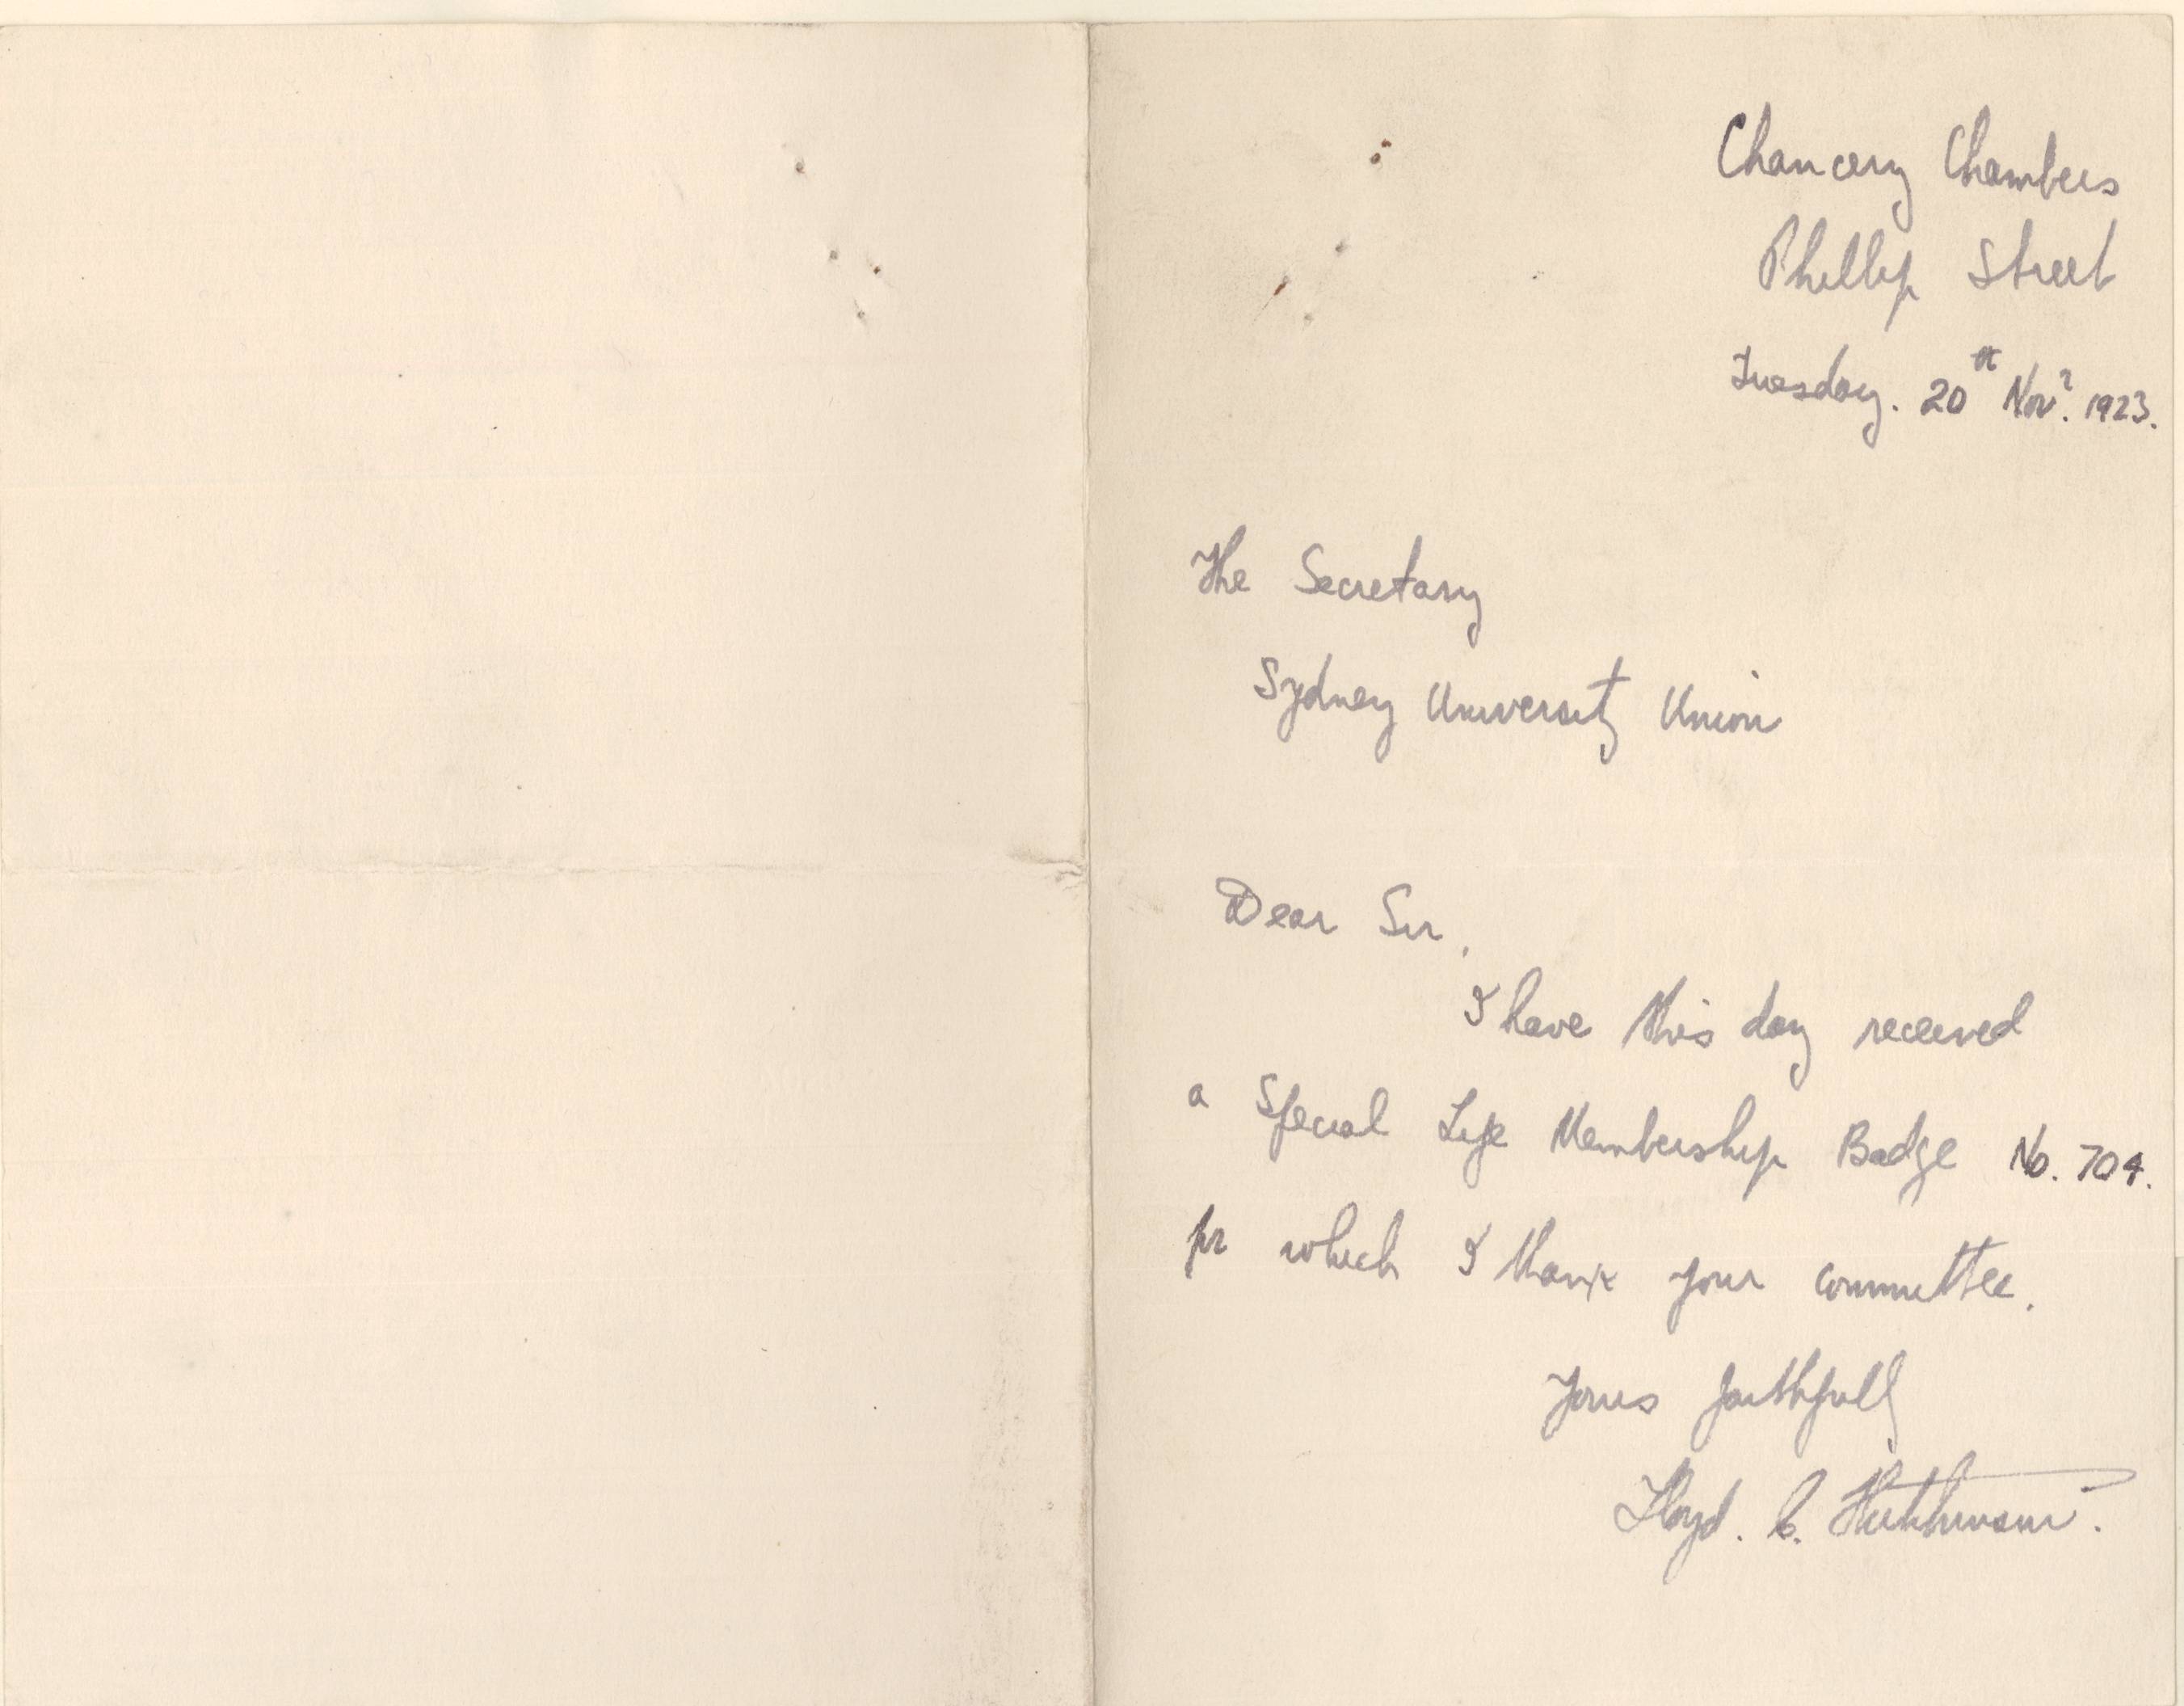 Chancery Chambers
Phillip Street
Tuesday. 20th Novr. 1923.
The Secretary
Sydney University Union
Dear Sir,
I have this day received
a Special Life Membership Badge No. 704.
for which I thank your committee.
Yours faithfully
Lloyd. C.